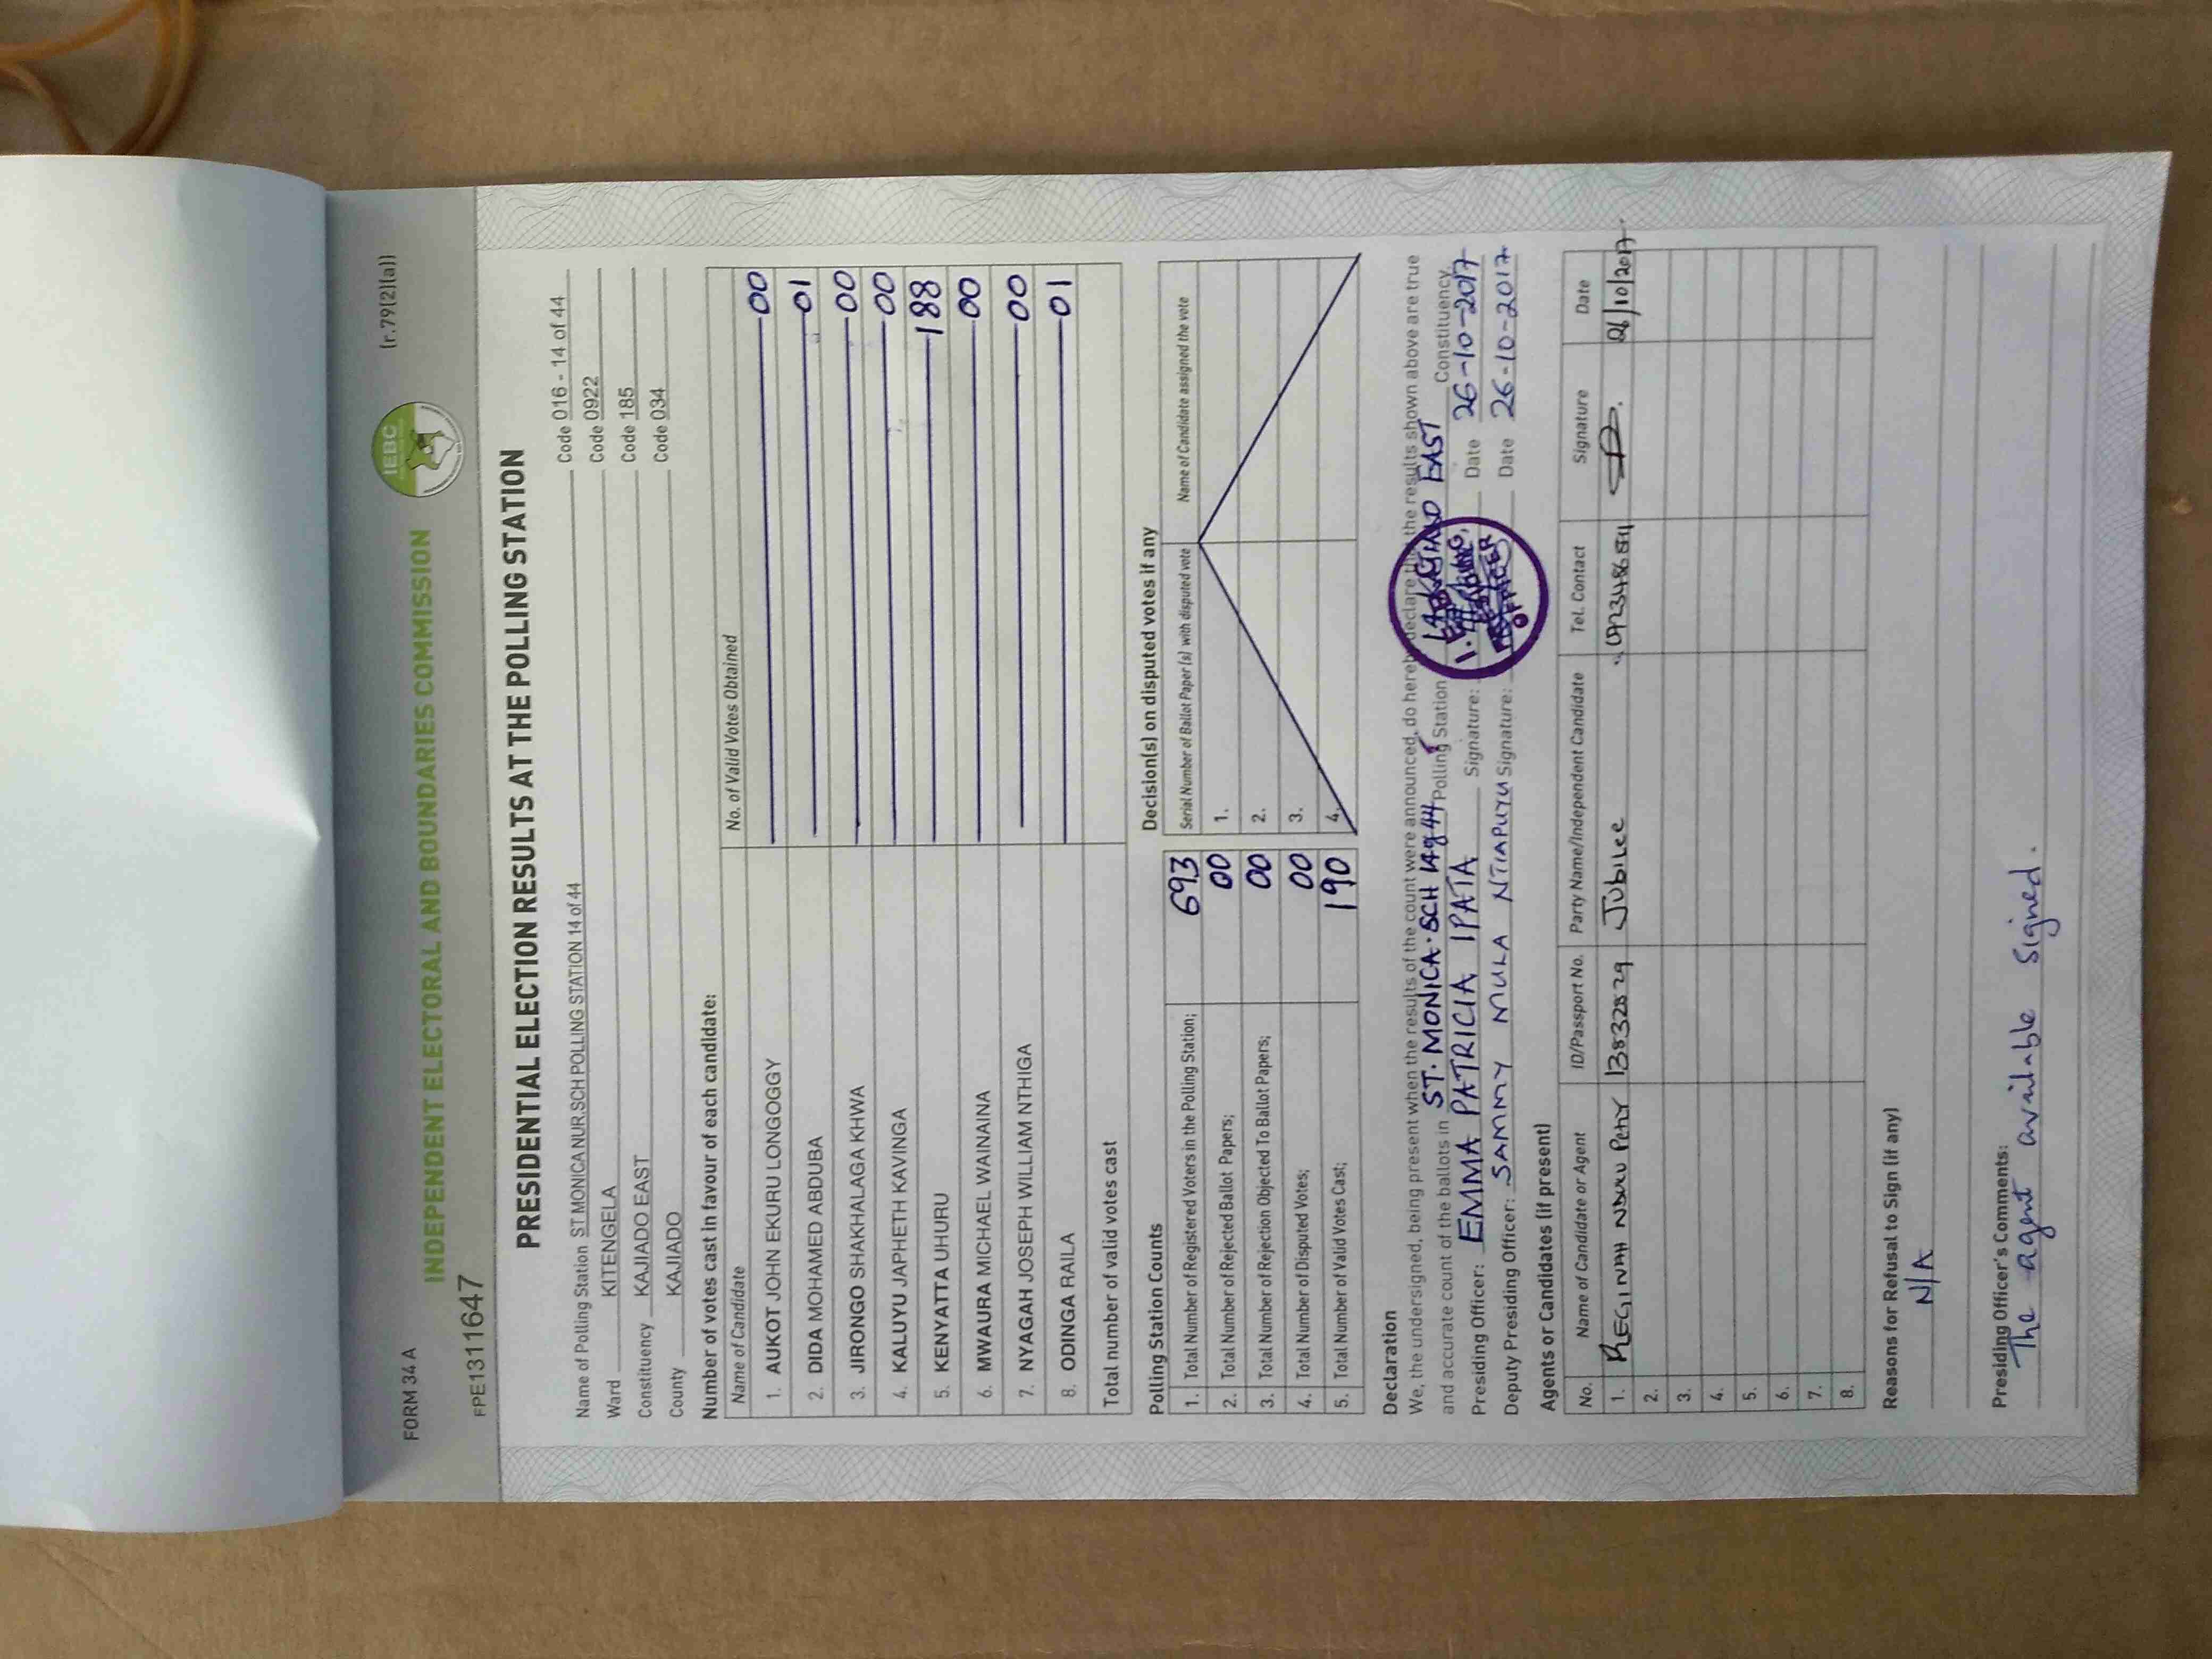 FORM 34 A
(r.79(2)(a))
IEBC
INDEPENDENT ELECTORAL AND BOUNDARIES COMMISSION
FPE1311647
PRESIDENTIAL ELECTION RESULTS AT THE POLLING STATION
Name of Polling Station ST MONICA NUR.SCH POLLING STATION 14 of 44 Code 016 - 14 of 44
Ward KITENGELA Code 0922
Constituency KAJIADO EAST Code 185
County KAJIADO Code 034
Number of votes cast in favour of each candidate:
Name of Candidate No. of Valid Votes Obtained
1. AUKOT JOHN EKURU LONGOGGY 00
2. DIDA MOHAMED ABDUBA 01
3. JIRONGO SHAKHALAGA KHWA 00
4. KALUYU JAPHETH KAVINGA 00
5. KENYATTA UHURU 188
6. MWAURA MICHAEL WAINAINA 00
7. NYAGAH JOSEPH WILLIAM NTHIGA 00
8. ODINGA RAILA 01
Total number of valid votes cast
Polling Station Counts
1. Total Number of Registered Voters in the Polling Station; 693
2. Total Number of Rejected Ballot Papers; 00
3. Total Number of Rejection Objected To Ballot Papers; 00
4. Total Number of Disputed Votes; 00
5. Total Number of Valid Votes Cast; 190
Decision(s) on disputed votes if any
Serial Number of Ballot Paper(s) with disputed vote Name of Candidate assigned the vote
1.
2.
3.
4.
Declaration
We, the undersigned, being present when the results of the count were announced, do hereby declare the results shown above are true
and accurate count of the ballots in ST. MONICA. SCH 14 of 44 Polling Station EAST Constituency
Presiding Officer: EMMA PATRICIA IPATA Signature: Date 26-10-2017
Deputy Presiding Officer: SAMMY MULA NTIAPUYU Signature: Date 26-10-2017
OFFICER
Agents or Candidates (if present)
No. Name of Candidate or Agent ID/Passport No. Party Name/Independent Candidate Tel. Contact Signature Date
1. REGINAH 13832829 Jubilee 26/10/2017
2.
3.
4.
5.
6.
7.
8.
Reasons for Refusal to Sign (if any)
N/A
Presiding Officer's Comments:
The agent available signed.